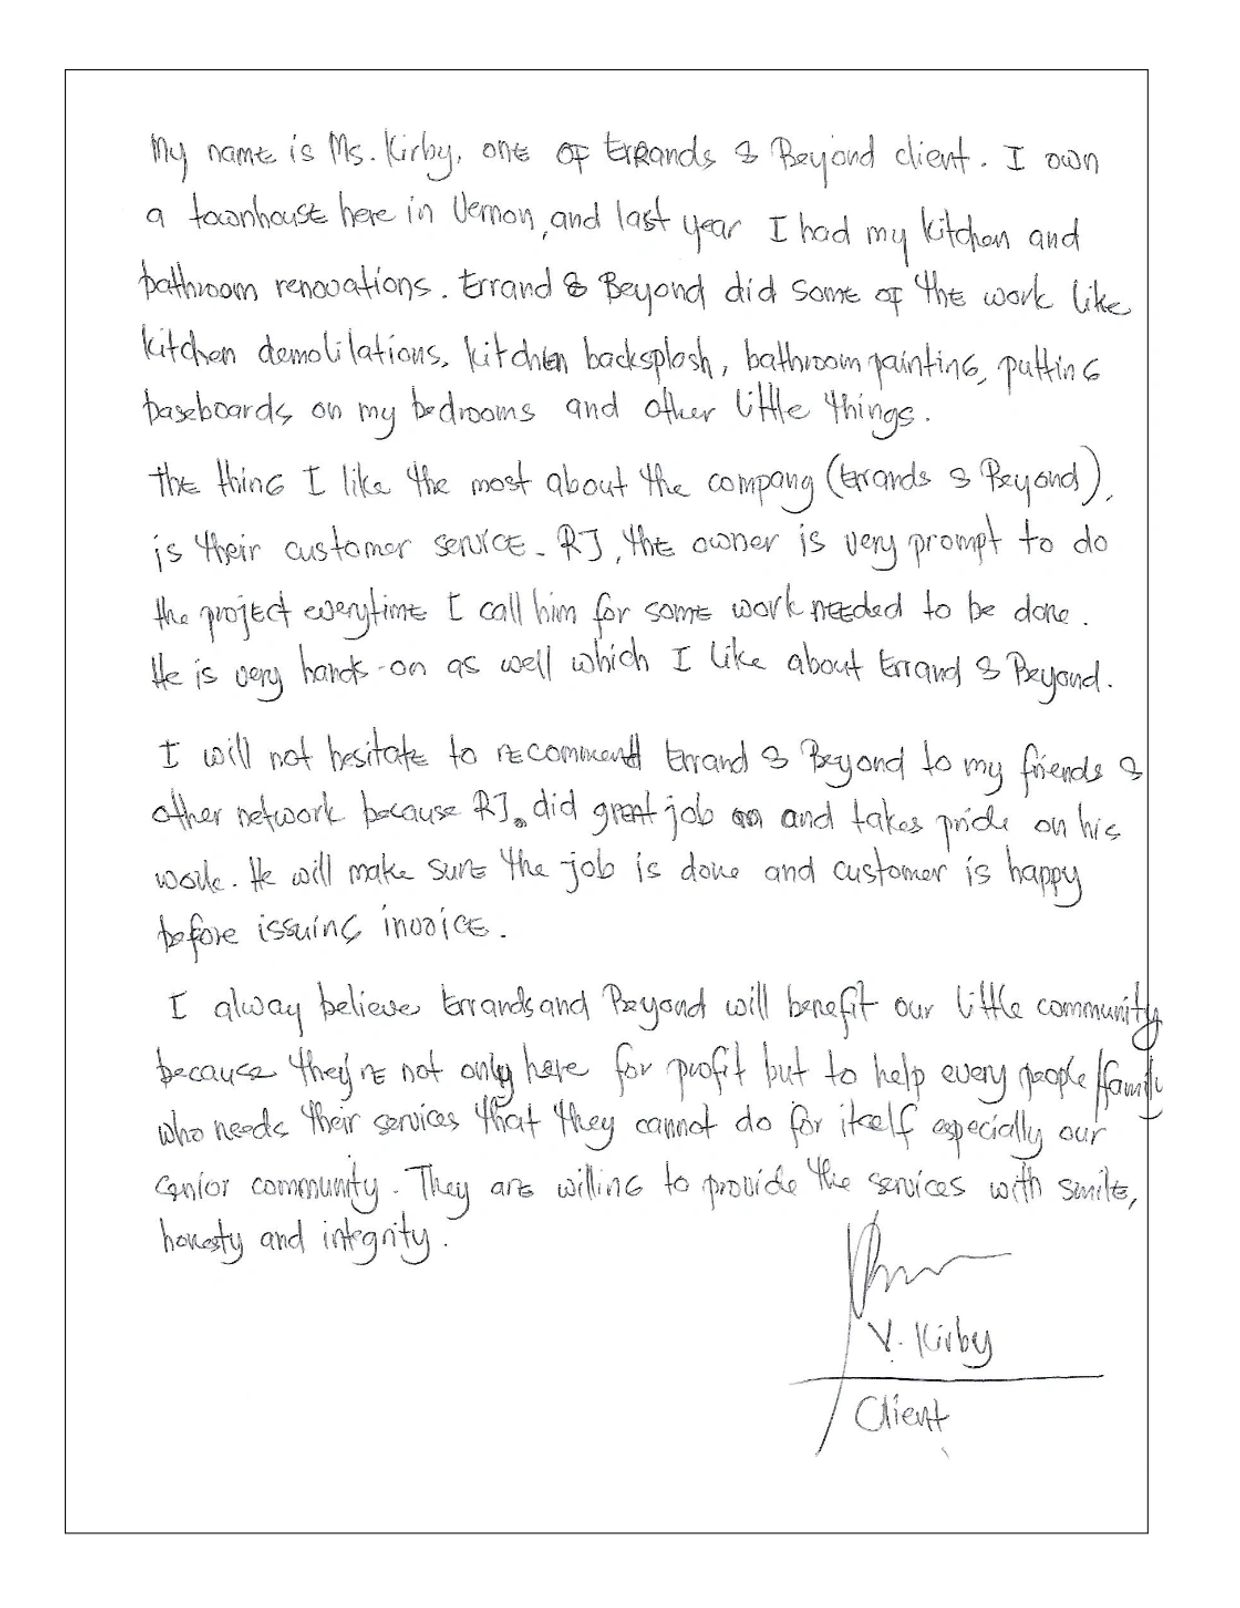 My name is Ms. Kirby, one of Errands & Beyond client. I own
a townhouse here in Vernon, and last year I had my kitchen and
bathroom renovations. Errand & Beyond did some of the work like
kitchen demolilations, kitchen backsplash, bathroom painting, putting
baseboards on my bedrooms and other little things.
The thing I like the most about the company (Errands & Beyond),
is their customer service. RJ, the owner is very prompt to do
the project everytime I call him for some work needed to be done.
He is very hands-on as well which I like about Errand & Beyond.
I will not hesitate to recommend Errand & Beyond to my friends &
other network because RJ. did great job and takes pride on his
work. He will make sure the job is done and customer is happy
before issuing invoice.
I alway believe Errands and Beyond will benefit our little community
because they're not only here for profit but to help every people/family
who needs their services that they cannot do for itself especially our
senior community. They are willing to provide the services with smile,
honesty and integrity.
V. Kirby
Client